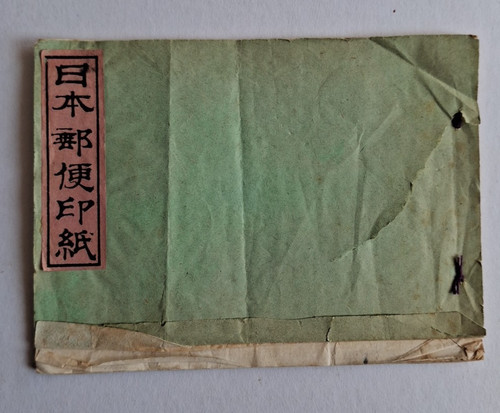 日本郵便印紙